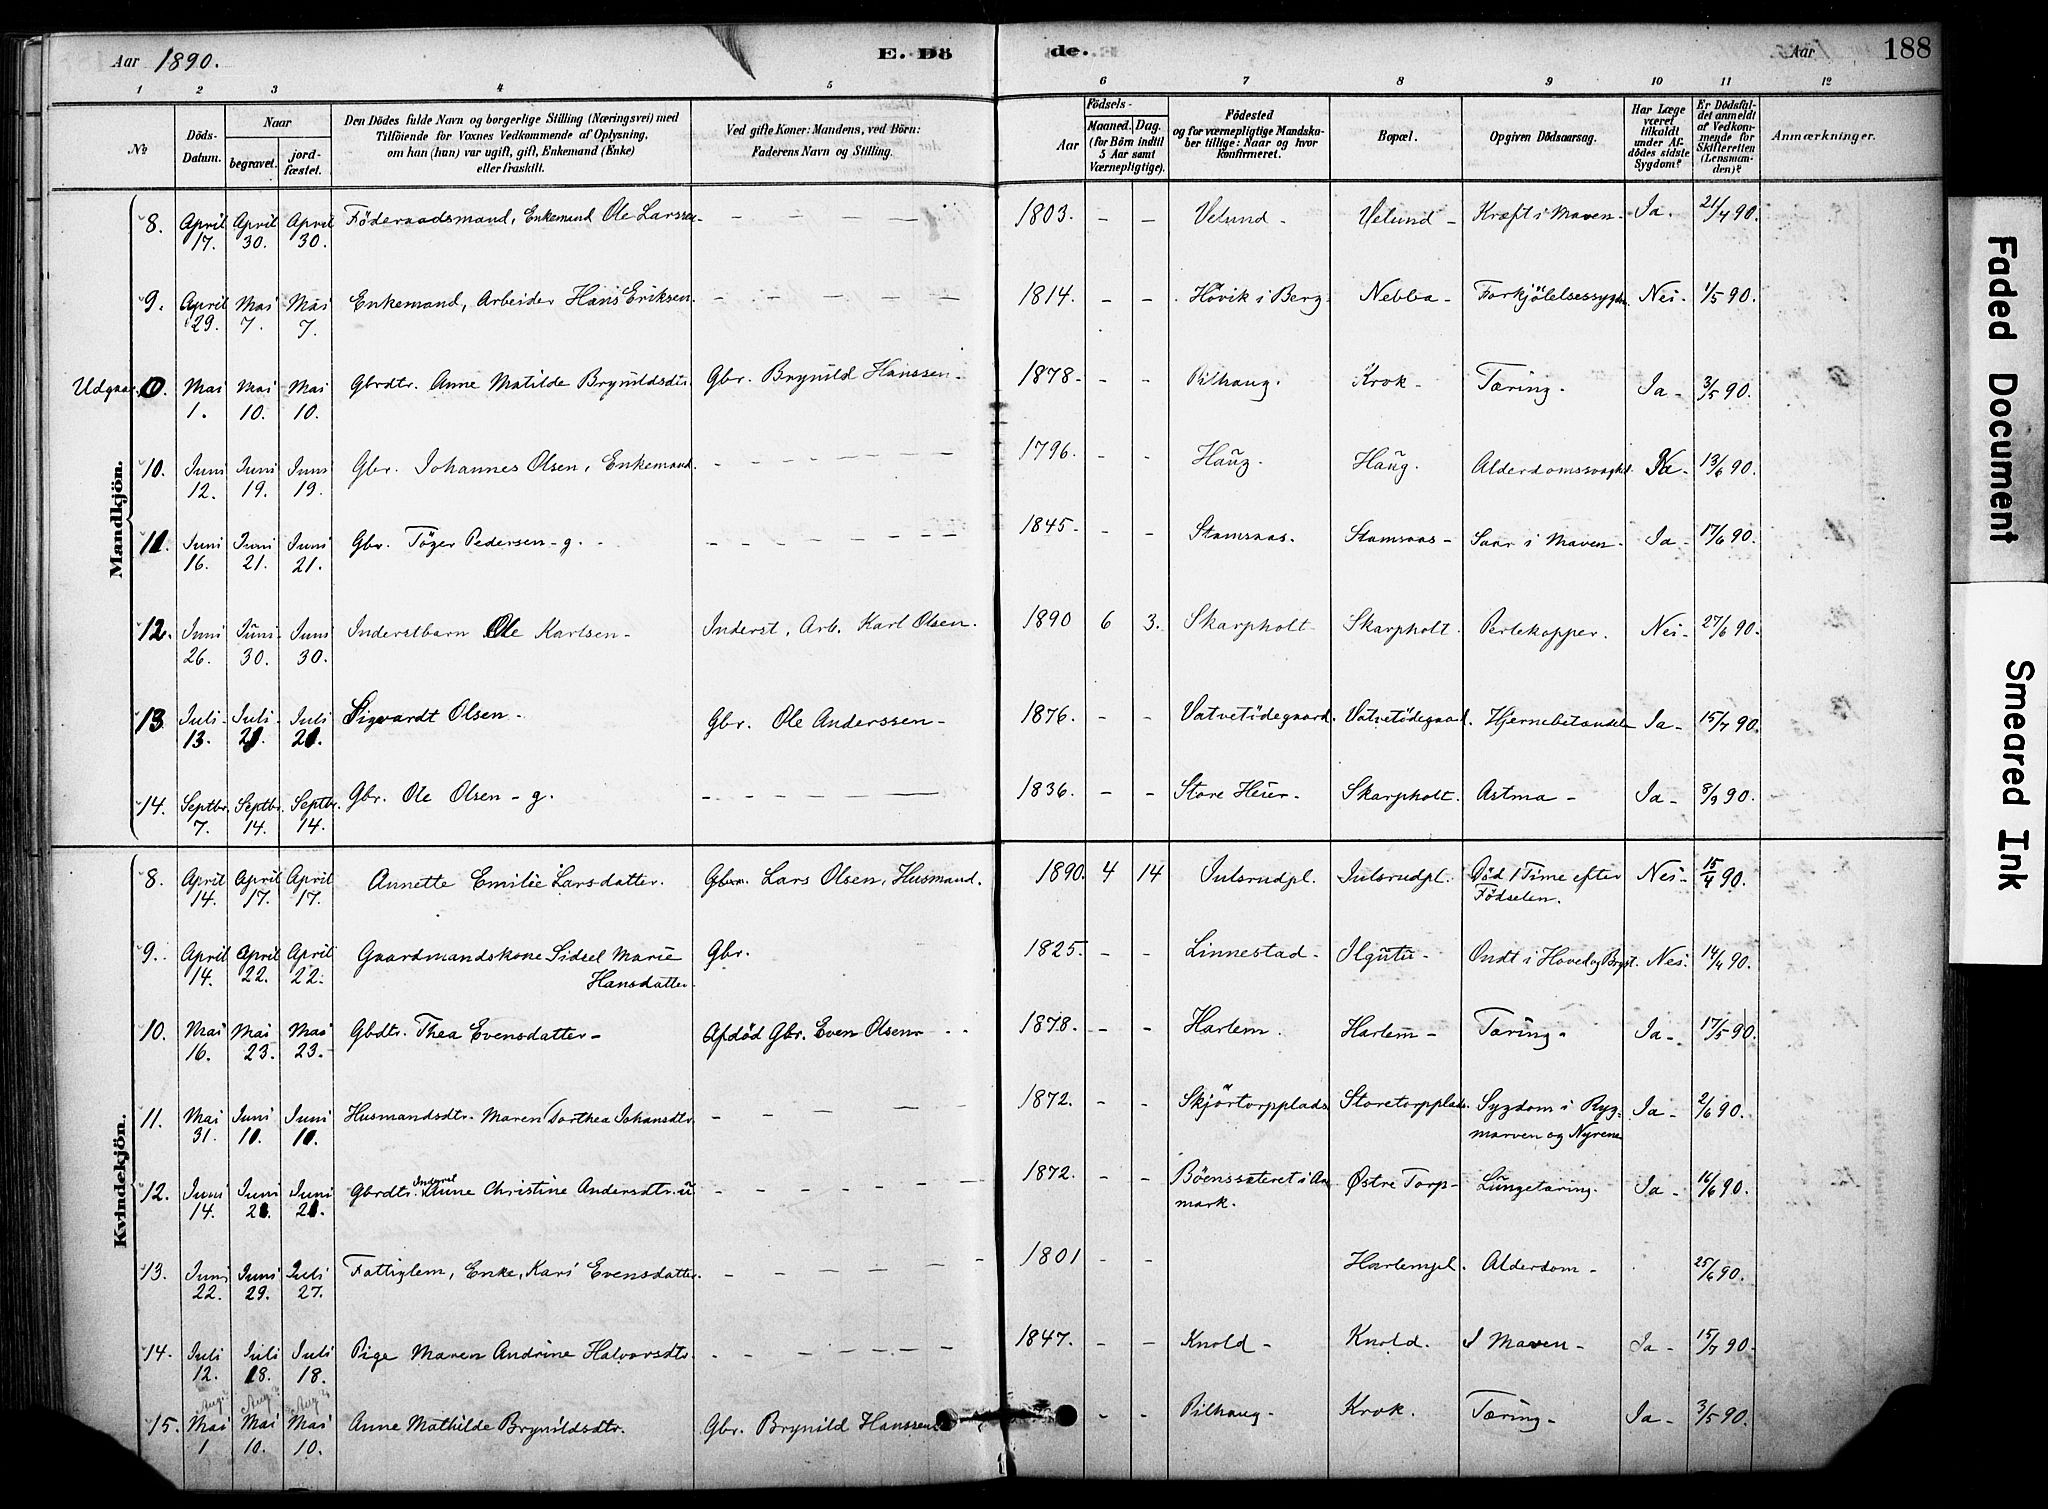 Aar 1890.
E. Dö
de.
Aar
188
1 2 3 4 5 6 7 8 9 10 11 12
No
Döds-
Datum.
Naar
begravet.
jord-
fæstet.
Den Dödes fulde Navn og borgerlige Stilling (Næringsvei) med
Tilföiende for Voxnes Vedkommende af Oplysning,
om han (hun) var ugift, gift, Enkemand (Enke)
eller fraskilt.
Ved gifte Koner: Mandens, ved Börn:
Faderens Navn og Stilling.
Födsels-
Aar
Maaned. Dag.
(for Börn indtil
5 Aar samt
Værnepligtige).
Födested
og for værnepligtige Mandska-
ber tillige: Naar og hvor
konfirmeret.
Bopæl.
Opgiven Dödsaarsag.
Har Læge
været
tilkaldt
under Af-
dödes sidste
Sygdom?
Er Dödsfal-
det anmeldt
af Vedkom-
mende for
Skifteretten
(Lensman-
den)?
Anmærkninger.
Mandkjön.
8. April 17. April 30. April 30. Föderaadsmand, Enkemand Ole Larssen - 1803. - - Velund - Velund - Kræft i Maven - Ja. 21/4 90.
9. April 29. Mai 7. Mai 7. Enkemand, Arbeider Hans Eriksen - 1814. - - Hövik i Berg - Nebba - Nei - 1/5 90.
10. Mai 1. Mai 10. Mai 10. Gbrdtr. Anne Matilde Gbr. Brynild Hanssen - 1878 - - - Pilhaug - Krok - Tæring - Ja - 3/5 90.
10. Juni 12. Juni 19. Juni 19. Gbr. Johannes Olsen, Enkemand. 1796. - - Haug. Haug. 13/6 90.
11. Juni 16. Juni 21. Juni 21. Gbr. Töger Pedersen - g. 1845 - - - Stamsaas. Stamsaas - Saar i Maven - Ja - 17/6 90.
12. Juni 26. Juni 30. Juni 30. Inderstbarn Ole Karlsen - Inderst, Arb. Karl Olsen. 1890 6 3. Skarpholt - Skarpholt. Perlekopper. Nei - 27/6 90.
13 Juli 13. Juli Juli Sigvardt Olsen - Gbr. Ole Anderssen - 1876. - - Vatvetödegaard. Vatvetödegaard. Ja - 15/7 90.
14. Septbr. 7. Septbr. 14. Septbr. 14. Gbr. Ole Olsen - g. 1836. - - Store Heier - Skarpholt. Astma - Ja - 8/9 90.
Kvindekjön.
8. April 14. April 17. April 17. Annette Emilie Larsdatter. Lars Olsen, Husmand. 1890. 4 14 Julsrudpl. Julsrudpl. Död 1 Time efter
Födselen. Nei - 15/4 90.
9. April 14. April 22. April 22. Gaardmandskone Sidsel Marie
Hansdatter. Gbr. 1825 - - Linnestad - Ondt i Hoved og Bryst. Nei. 14/4 90.
10. Mai 16. Mai 23. Mai 23. Gbdtr. Thea Evensdatter - Afdöd Gbr. Even Olsen 1878. - - Harlem. Harlem - Tæring - Ja - 17/5 90.
11. Mai 31. Juni 10. Juni 10. Husmandsdtr. Maren Dorthea Johansdtr. 1872. - - Skjörtorpplads Storetorpplads. Sygdom i Ryg-
marven og Nyrene Ja - 2/6 90.
12. Juni 14. Juni Juni Gbrdtr. Anne Christine Andersdtr. u 1872. - - Østre Torp - Lungetæring. Ja - 16/6 90.
13. Juni 22. Juni 29. Juli 27. Fattiglem, Enke, Kari Evensdatter. 1801 - - Harlempl. Alderdom - 25/6 90.
14. Juli 12. Juli 18. Juli 18. Pige Maren Andrine Halvorsdtr. 1847. - - Knold - Knold. I Maven - Ja - 15/7 90.
15. Mai 1 Mai 10. Mai 10. Anne Mathilde Brynildsdtr. Gbr. Brynild Hanssen - - Pilhaug - Krok. Tæring - Ja - 3/5 90.
Faded Document
Smeared Ink